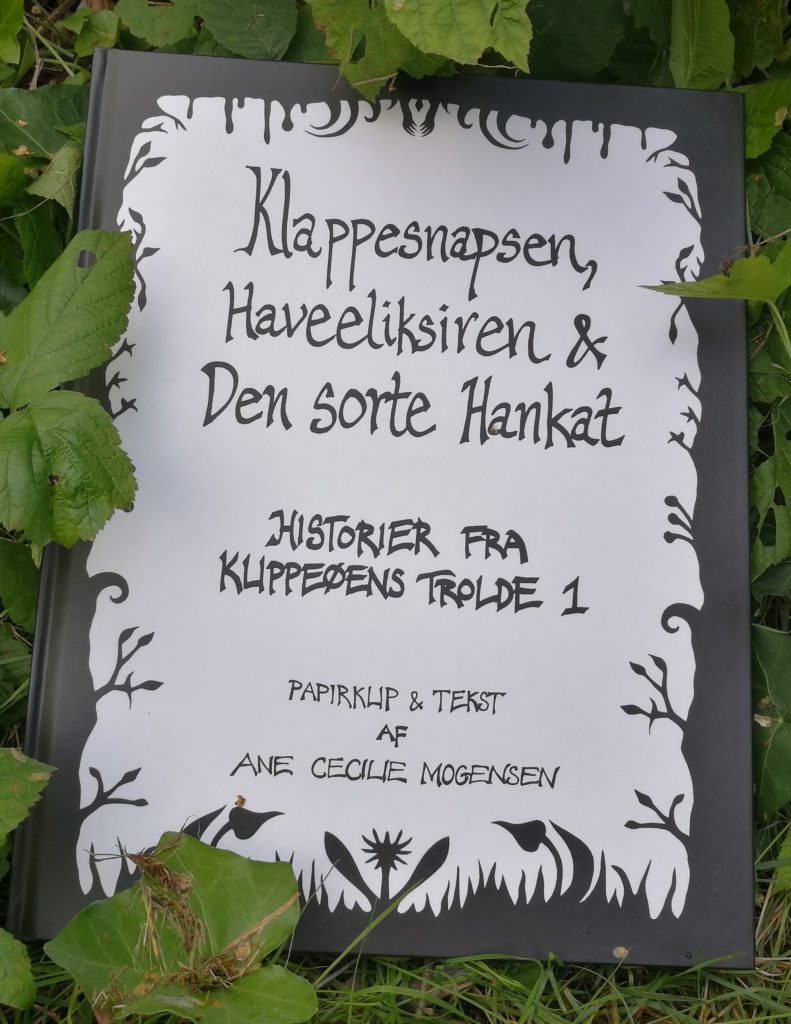 Klappesnapsen,
Haveeliksiren &
Den sorte Hankat
HISTORIER FRA
KLIPPEØENS TROLDE 1
PAPIRKLIP & TEKST
AF
ANE CECILIE MOGENSEN